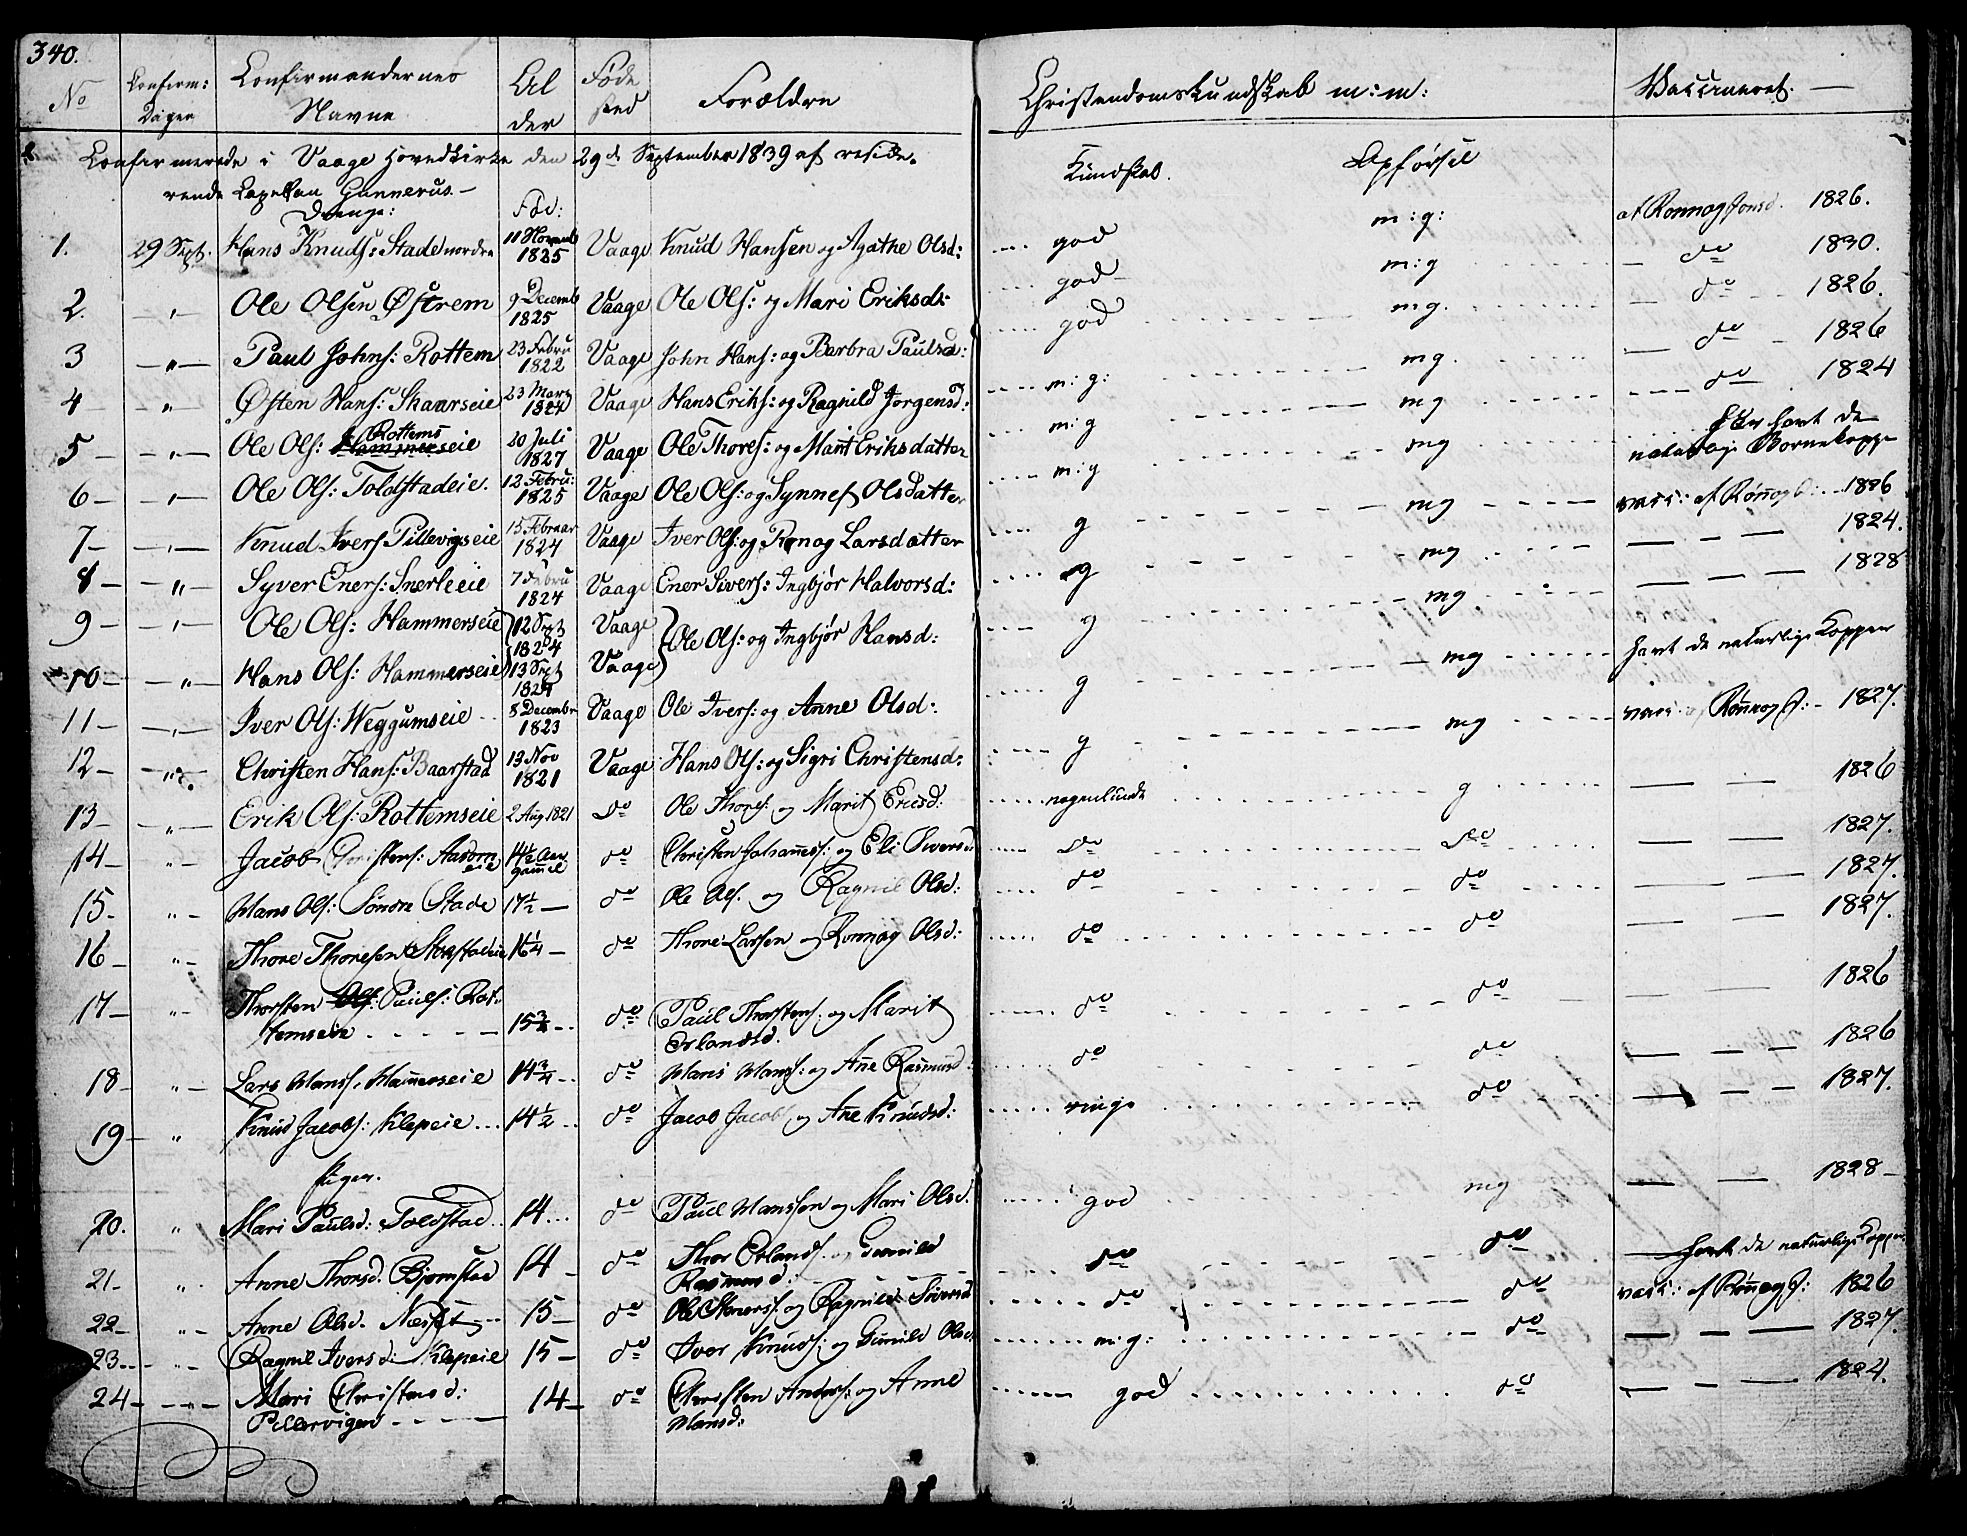 340.
No Confirm: Dagen Confirmandernes Navne Alder Føde sted Forældre Christendomskundskab m:m: Vaccineret.
Confirmerede i Vaage Hovedkirke den 29de September 1839 af reside-
rende Capellan Gunnerus.
Drenge: Fød: Kundskab. Opførsel
1. 29 Sept. Hans Knuds: Stade nordre 11 Novemb 1825 Vaage Knud Hansen og Agathe Olsd: god m:g: af Ronnog Jonsd. 1826.
2. " Ole Olsen Øştrem 9 Decemb 1825 Vaage Ole Ols: og Mari Eriksds: god m:g do 1830.
3 " Paul Johns: Rottem 23 Febru 1822 Vaage John Hans: og Barbra Paulsd: god mg. do 1826.
4 " Østen Hans: Skaarseie 23 Marz 1824 Vaage Hans Eriks: og Ragnild Jorgensd: m:g: mg. do 1826
5 " Ole Ols: Rottems Hammerseie 20 Juli 1827 Vaage Ole Thores: og Marit Eriksdatter m:g mg do 1824
6 " Ole Ols: Toldstadeie. 12 Febru: 1825 Vaage Ole Ols: og Synnef Olsdatter m:g mg havt de naturlige Bornekopper
7 " Knud Ivers Pillevigseie 15 Februar 1824 Vaage Iver Ols: og Ronog Larsdatter g mg vacc: af Rönog J: 1826
8 " Syver Eners: Snerleeie 7 Febru 1824 Vaage Ener Sivers: Ingbjør Halvorsd: g mg 1824.
9 " Ole Ols: Hammerseie 12 Sept 1824 Vaage Ole Ols: og Ingbjør Hansd: g mg 1828
10 " Hans Ols: Hammerseie 13 Sept 1824 Vaage g mg havt de naturlige Kopper
11 " Iver Ols: Weggumseie 8 Decembr 1823 Vaage Ole Ivers: og Anne Olsd: g mg vacc: af Rönnog J: 1827.
12 " Christen Hans: Baarstad 13 Nov 1821 Vaage Hans Ols: og Sigri Christensd: nogenlunde g 1826
13 " Erik Ols: Rottemseie 2 Aug 1821 do Ole Thores: og Marit Ericsd: do do 1827.
14 " Jacob Christens: 14½ Aar gammel do Christen Johanness: og Eli Siversd do do 1827.
15 " Hans Ols: Söndre Stade 17½ do Ole Ols. og Ragnil Olsd: do do 1827.
16 " Thore Thoresen 16¼ do Thore Larsen og Ronnog Olsd:
17 " Thorsten Ols: Pauls: Rot-
temseie 15¾ do Paul Thorstens: og Marit
Erlandsd. do do 1826
18 " Lars Hans: Hamerseie 14¾ do Hans Hans: og Ane Rasmusd: do do 1826
19 " Knud Jacobs: Klepeie 14½ do Jacob Jacobs og Ane Knudsd: ringe do 1827.
Piger.
20. " Mari Paulsd: Toldstad 14 do Paul Hanssen og Mari Olsd. god mg 1828
21 " Anne Thorsd. Bjornstad 14 do Thor Erlands. og Gunild
Rasmusd: do do havt de naturlige Kopper
22 " Anne Olsd. 15 do Ole og Ragnild Siversd do do vacc: af Rönnog J: 1826
23 " Ragnil Iversd: Klepeie 15 do Iver Knuds: og Gunild Olsd: m:g: do 1827.
24 " Mari Christensd:
Pillervigen 14 do Christen Anders: og Anne
Hansd: god do 1824.